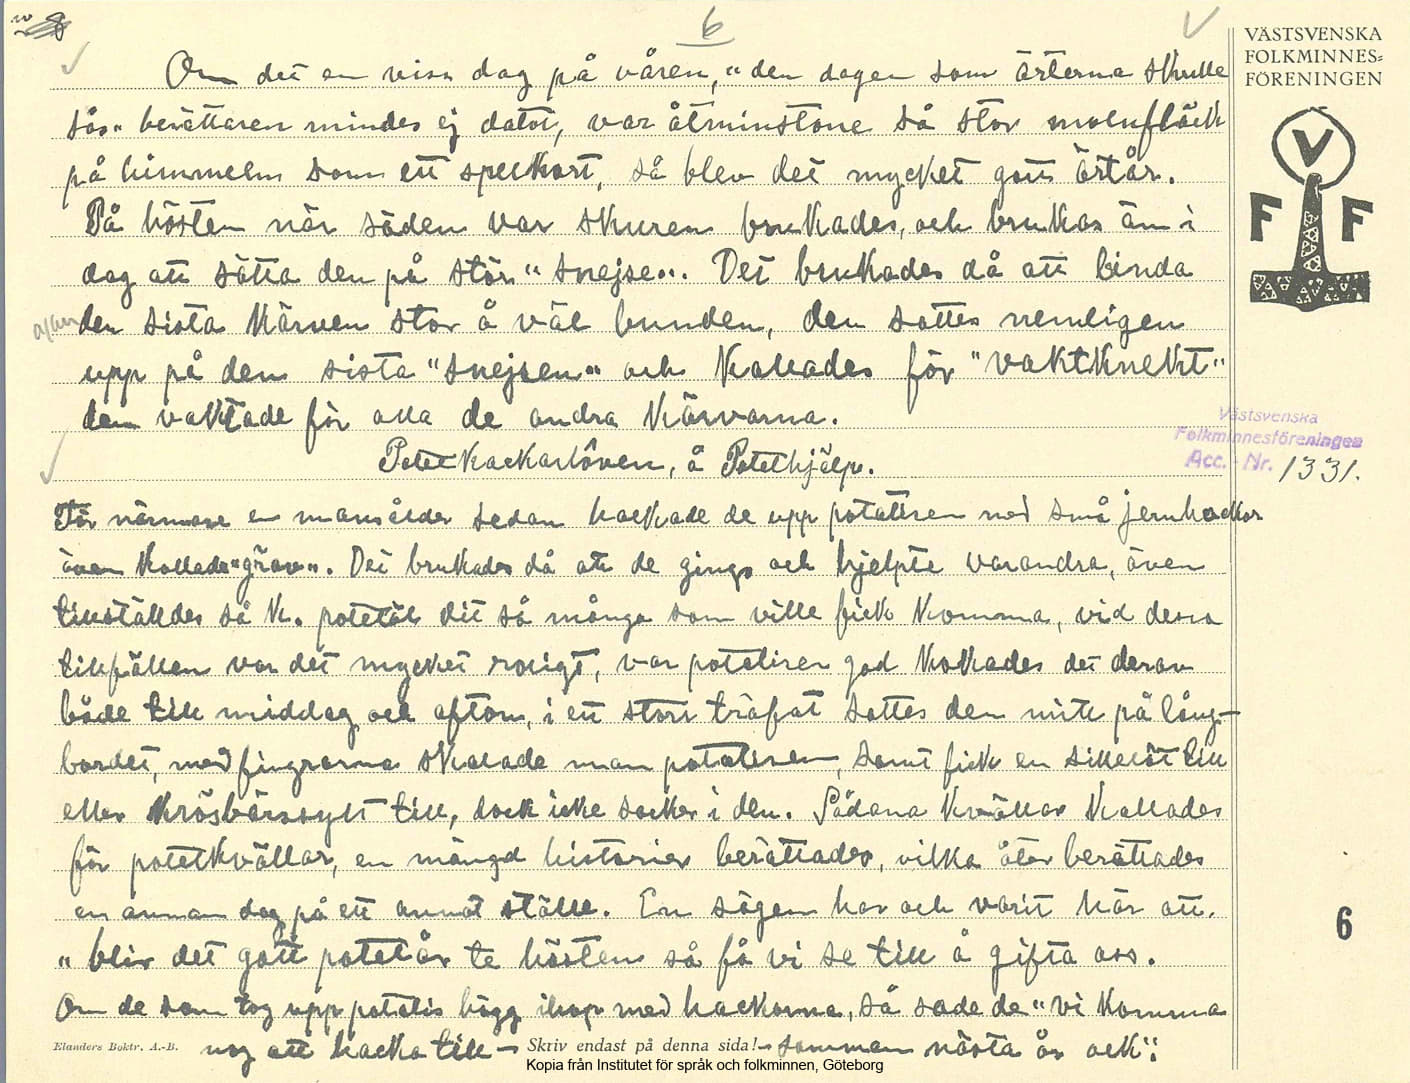 6
VÄSTSVENSKA
FOLKMINNES=
FÖRENINGEN
V
F F
Om det en viss dag på våren, "den dagen som ärterna skulle
sås" berättaren mindes ej datot, var åtminstone så stor molnfläck
på himmelen som ett spelkort, så blev det mycket gott ärtår.
På hösten när säden var skuren brukades, och brukas än i
dag att sätta den på stör "snejse". Det brukades då att binda
den sista kärven stor å väl bunden, den sattes nemligen
upp på den sista "snejsen" och kallades för "vaktknekt"
den vaktade för alla de andra kärvarna.
Västsvenska
Folkminnesföreningen
Acc. - Nr. 1331.
Potethjälp.
För närmare en mansålder sedan hackade de upp potatisen med små jernhackor
även kallade "gräv". Det brukades då att de gingo och hjelpte varandra, även
tillställdes så k. dit så många som ville fick komma, vid dessa
tillfällen var det mycket roligt, var potatisen god kokades det derav
både till middag och afton, i ett stort träfat sattes den mitt på lång-
bordet, med fingrarna skalade man potatisen, samt fick en till
eller krösbärssylt till, dock icke socker i den. Sådana kvällar kallades
för potetkvällar, en mängd historier berättades, vilka åter berättades
en annan dag på ett annat ställe. En sägen har och varit här att.
" blir det gott potetår te hösten så få vi se till å gifta oss.
Om de som tog upp potatis högg ihop med hackorna, så sade de "vi komma
nog att hacka till- -samman nästa år ock".
6
Elanders Boktr. A.-B.
Skriv endast på denna sida!
Kopia från Institutet för språk och folkminnen, Göteborg